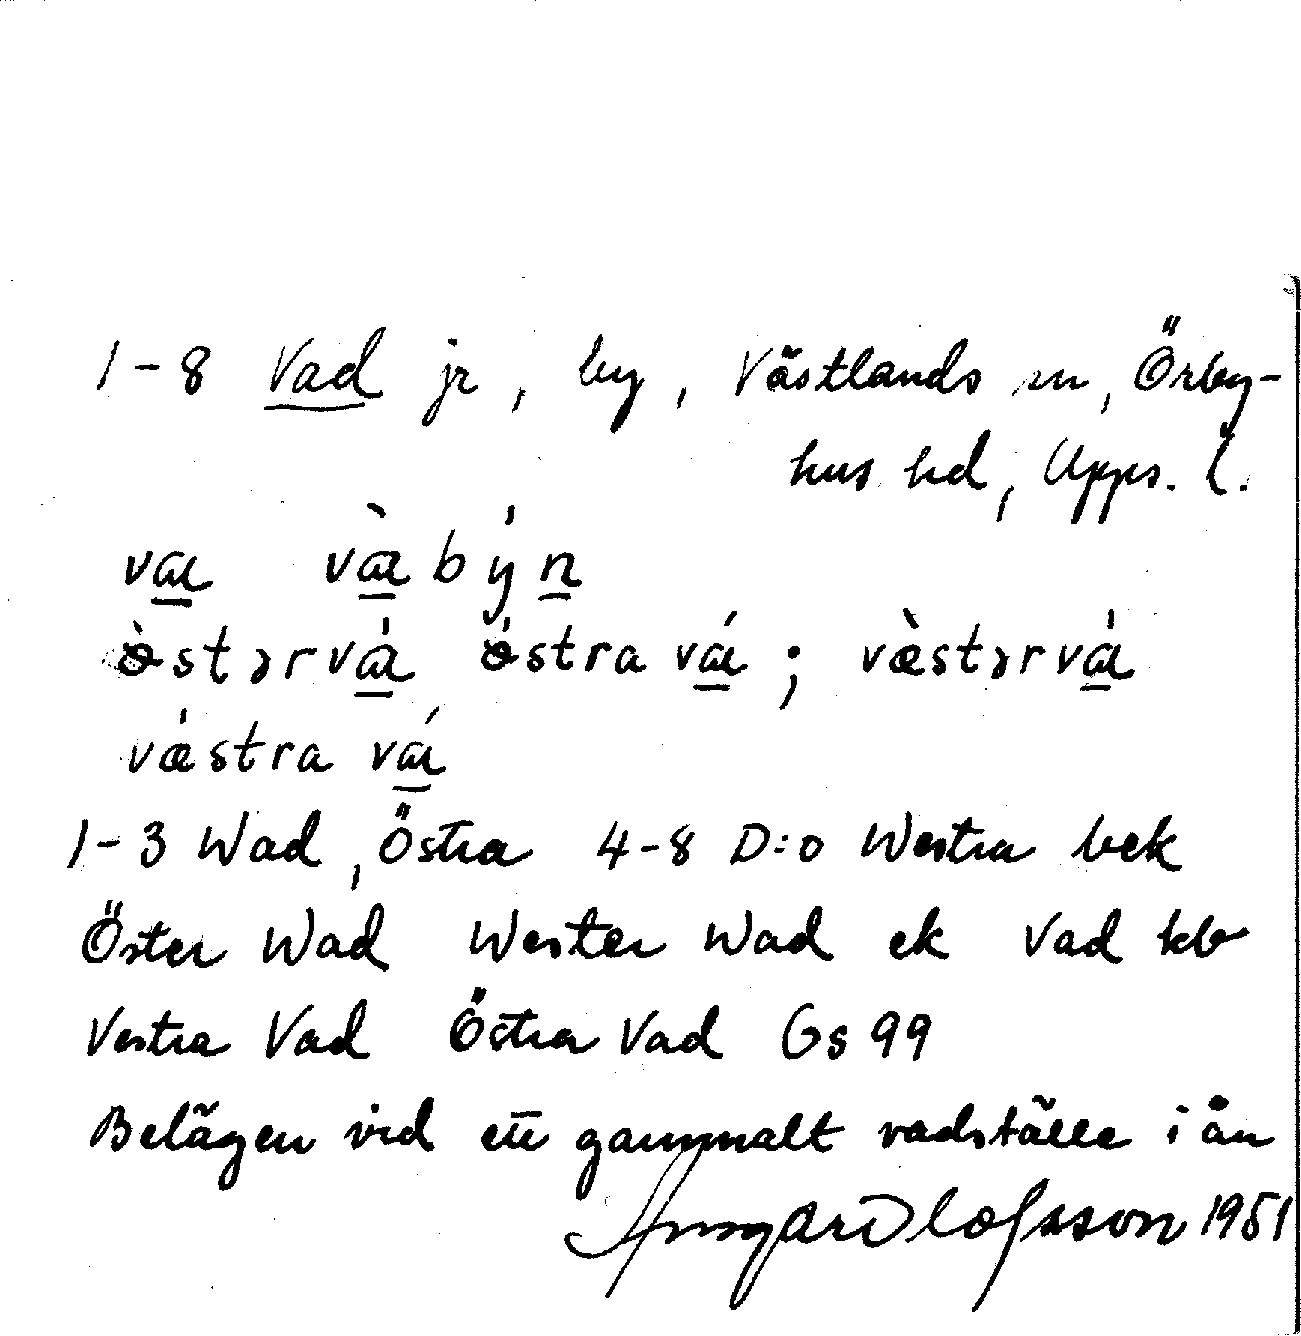 1-8 Vad jr, by, Västlands sn, Örby-
hus hd, Upps. l.
vɑ vɑ̀býn
ø̀stərvɑ́ ǿstra vɑ́; væ̀stərvɑ́
vǽstra vɑ́
1-3 Wad, Östra 4-8 D:o Westra bek
Öster Wad Wester Wad ek Vad kb
Vestra Vad Östra Vad Gs 99
Belägen vid ett gammalt vadställe i ån
Olofsson 1951